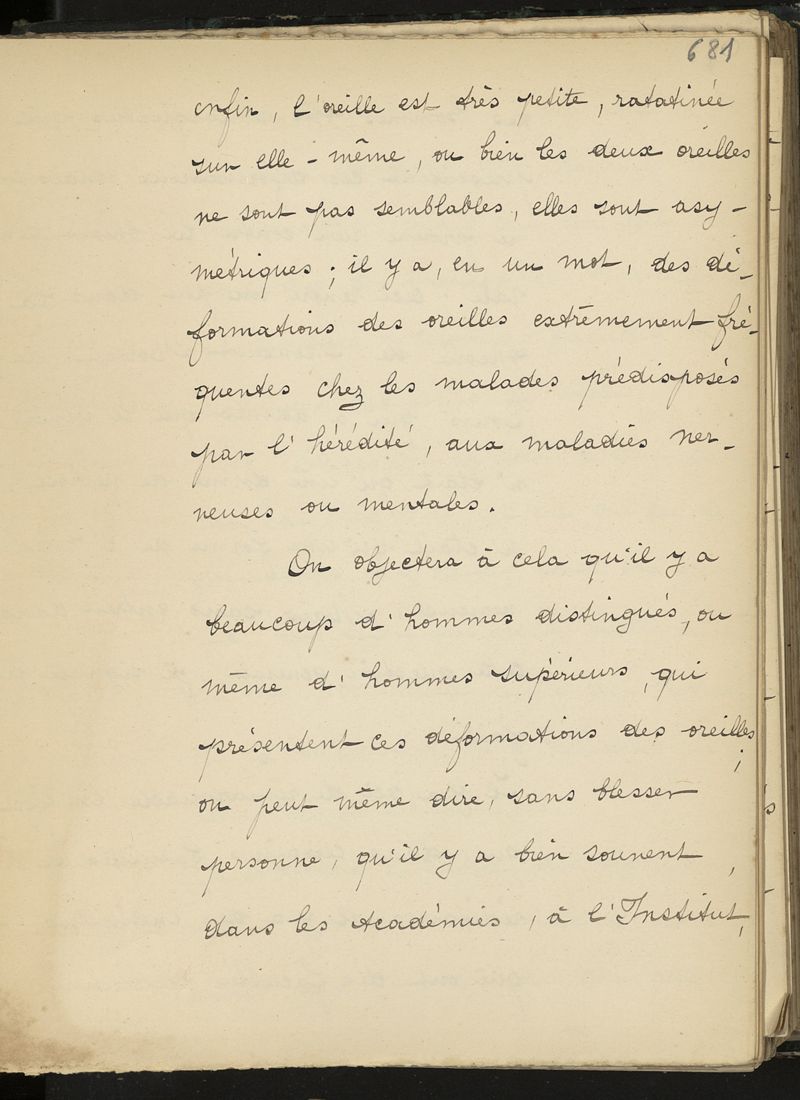 681
enfin, l'oreille est très petite, ratatinée
sur elle-même, ou bien les deux oreilles
ne sont pas semblables, elles sont asy-
métriques ; il y a, en un mot, des dé-
formations des oreilles extrêmement fré-
quentes chez les malades prédisposés
par l'hérédité, aux maladies ner-
veuses ou mentales.
On objectera à cela qu'il y a
beaucoup d'hommes distingués, ou
même d'hommes supérieurs, qui
présentent ces déformations des oreilles ;
on peut même dire, sans blesser
personne, qu'il y a bien souvent,
dans les Académies, à l'Institut,